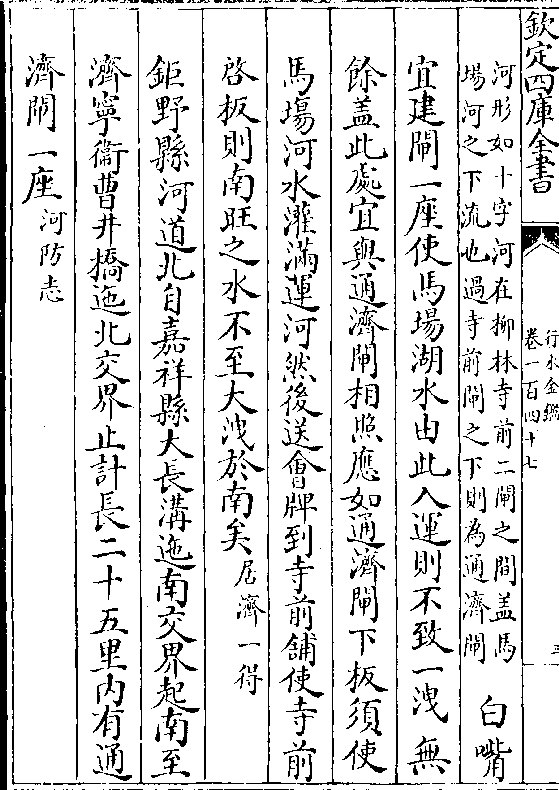 欽定四庫全書
行水金鑑
卷一百四十七
河形如十字河在柳林寺前二閘之間盖馬
場河之下流也過寺前閘之下則為通濟閘
白嘴
宜建閘一座使馬場湖水由此入運則不致一洩無
餘盖此處宜與通濟閘相照應如通濟閘下板須使
馬塲河水灌滿運河然後送㑹牌到寺前舖使寺前
啓板則南旺之水不至大洩於南矣居濟一得
鉅野縣河道北自嘉祥縣大長溝迤南交界起南至
濟寧衞曹井橋迤北交界止計長二十五里内有通
濟閘一座河防志